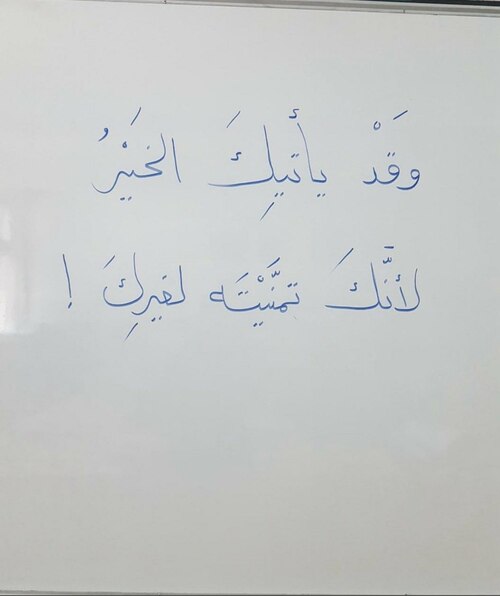 وَقَدْ يأتيكَِ الخَيْرُ
لأنَّكَ تمنَّيْتَه لغيركَِ !